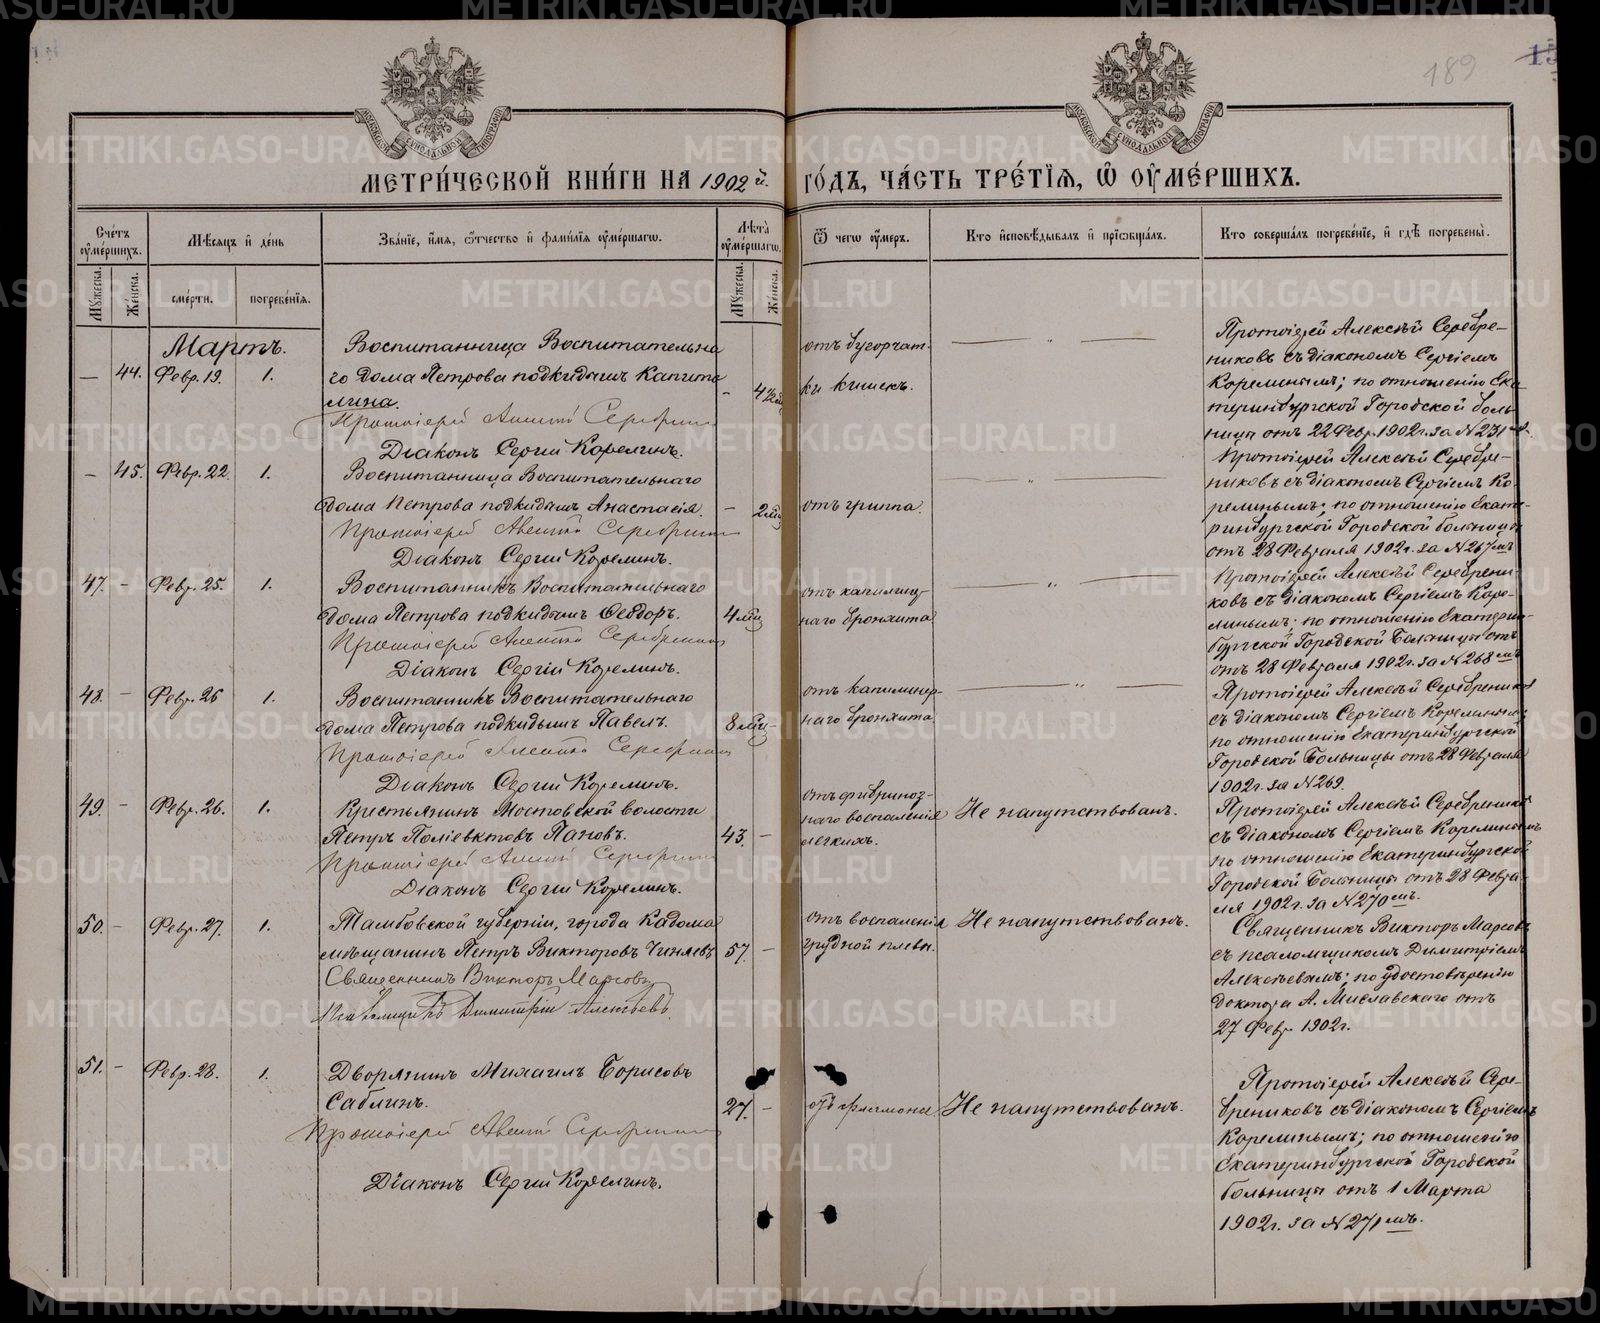 189
МЕТРИ́ЧЕСКОЙ КНИ́ГИ НА 1902й.
ГО́ДЪ, ЧА́СТЬ ТРЕ́ТІЯ, Ѽ ОУ҆МЕ́РШИХЪ.
МОСКОВСКОЙ СѴНОДАЛЬНОЙ ТИПОГРАФІИ
МОСКОВСКОЙ СѴНОДАЛЬНОЙ ТИПОГРАФІИ
Сче́тъ оу҆ме́ршихъ.
Мꙋ́жеска.
Же́нска.
Мѣ́сяцъ и҆ де́нь
сме́рти.
погребе́нія.
Зва́ніе, и҆́мя, ѻ҆́тчество и҆ фами́лія оу҆ме́ршагѡ.
Лѣ́та оу҆ме́ршагѡ.
Мꙋ́жеска.
Же́нска.
Ѿ чегѡ̀ оу҆́меръ.
Кто̀ и҆сповѣ́дывалъ и҆ прїѡбща́лъ.
Кто̀ соверша́лъ погребе́ніе, и҆ гдѣ̀ погребены̀.
Мартъ.
— 44. Февр. 19. 1.
Воспитанница Воспитательна
го Дома Петрова подкидышъ Капито
лина.
Протоіерей Алексѣй Серебрениковъ
Діаконъ Сергій Корелинъ.
- 4
отъ бугорчат-
ки кишекъ.
— „ —
Протоіерей Алексѣй Серебре-
никовъ съ діакономъ Сергіемъ
Корелинымъ; по отношенію Ека-
теринбургской Городской боль-
ницы отъ 22 Февр. 1902 г. за № 231мъ.
— 45. Февр. 22. 1.
Воспитанница Воспитательнаго
Дома Петрова подкидышъ Анастасія.
Протоіерей Алексѣй Серебрениковъ
Діаконъ Сергій Корелинъ.
- 2 мѣс
отъ гриппа.
— „ —
Протоіерей Алексѣй Серебре-
никовъ съ діакономъ Сергіемъ Ко-
релинымъ; по отношенію Екате-
ринбургской Городской больницы
отъ 28 Февраля 1902 г. за № 267мъ
47. - Февр. 25. 1.
Воспитанникъ Воспитательнаго
Дома Петрова подкидышъ Ѳеодоръ.
Протоіерей Алексѣй Серебрениковъ
Діаконъ Сергій Корелинъ.
4 мѣс
отъ капиляр-
наго бронхита
— „ —
Протоіерей Алексѣй Серебрени-
ковъ съ діакономъ Сергіемъ Коре-
линымъ; по отношенію Екатерин-
бургской Городской Больницы отъ
отъ 28 Февраля 1902 г. за № 268мъ
48. - Февр. 26 1.
Воспитанникъ Воспитательнаго
Дома Петрова подкидышъ Павелъ.
Протоіерей Алексѣй Серебрениковъ
Діаконъ Сергій Корелинъ.
8 мѣс -
отъ капиляр-
наго бронхита
— „ —
Протоіерей Алексѣй Серебрениковъ
съ діакономъ Сергіемъ Корелинымъ
по отношенію Екатеринбургской
Городской Больницы отъ 28 Февраля
1902 г. за № 269.
49. - Февр. 26. 1.
Крестьянинъ Мостовской волости
Петръ Поліевктовъ Пановъ.
Протоіерей Алексѣй Серебрениковъ
Діаконъ Сергій Корелинъ.
43. —
отъ фибриноз-
наго воспаленія
легкихъ.
Не напутствованъ.
Протоіерей Алексѣй Серебрениковъ
съ діакономъ Сергіемъ Корелинымъ
по отношенію Екатеринбургской
Городской Больницы отъ 28 Февра-
ля 1902 г. за № 270мъ.
50. - Февр. 27. 1.
Тамбовской губерніи, города Кадома
мѣщанинъ Петръ Викторовъ Чиняевъ
Священникъ Викторъ Марсовъ
Псаломщикъ Димитрій Алексѣевъ.
57. —
отъ воспаленія
грудной плевы.
Не напутствованъ.
Священникъ Викторъ Марсовъ
съ псаломщикомъ Димитріемъ
Алексѣевымъ; по удостовѣренію
доктора А. Миславскаго отъ
27 Февр. 1902 г.
51. - Февр. 28. 1.
Дворянинъ Михаилъ Борисовъ
Саблинъ.
Протоіерей Алексѣй Серебрениковъ
Діаконъ Сергій Корелинъ.
27. —
отъ флегмоны
Не напутствованъ.
Протоіерей Алексѣй Сере-
брениковъ съ діакономъ Сергіемъ
Корелинымъ; по отношенію
Екатеринбургской Городской
больницы отъ 1 Марта
1902 г. за № 271мъ.
METRIKI.GASO-URAL.RU